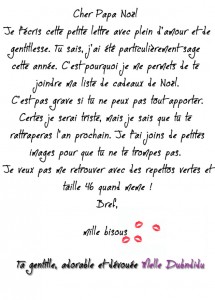 Cher Papa Noël
Je t'écris cette petite lettre avec plein d'amour et de
gentillesse. Tu sais, j'ai été particulièrement sage
cette année. C'est pourquoi je me permets de te
joindre ma liste de cadeaux de Noël.
C'est pas grave si tu ne peux pas tout apporter.
Certes je serai triste, mais je sais que tu te
rattraperas l'an prochain. Je t'ai joins de petites
images pour que tu ne te trompes pas.
Je veux pas me retrouver avec des repettos vertes et
taille 46 quand meme !
Bref,
mille bisous
Ta gentille, adorable et dévouée Melle Dubndidu